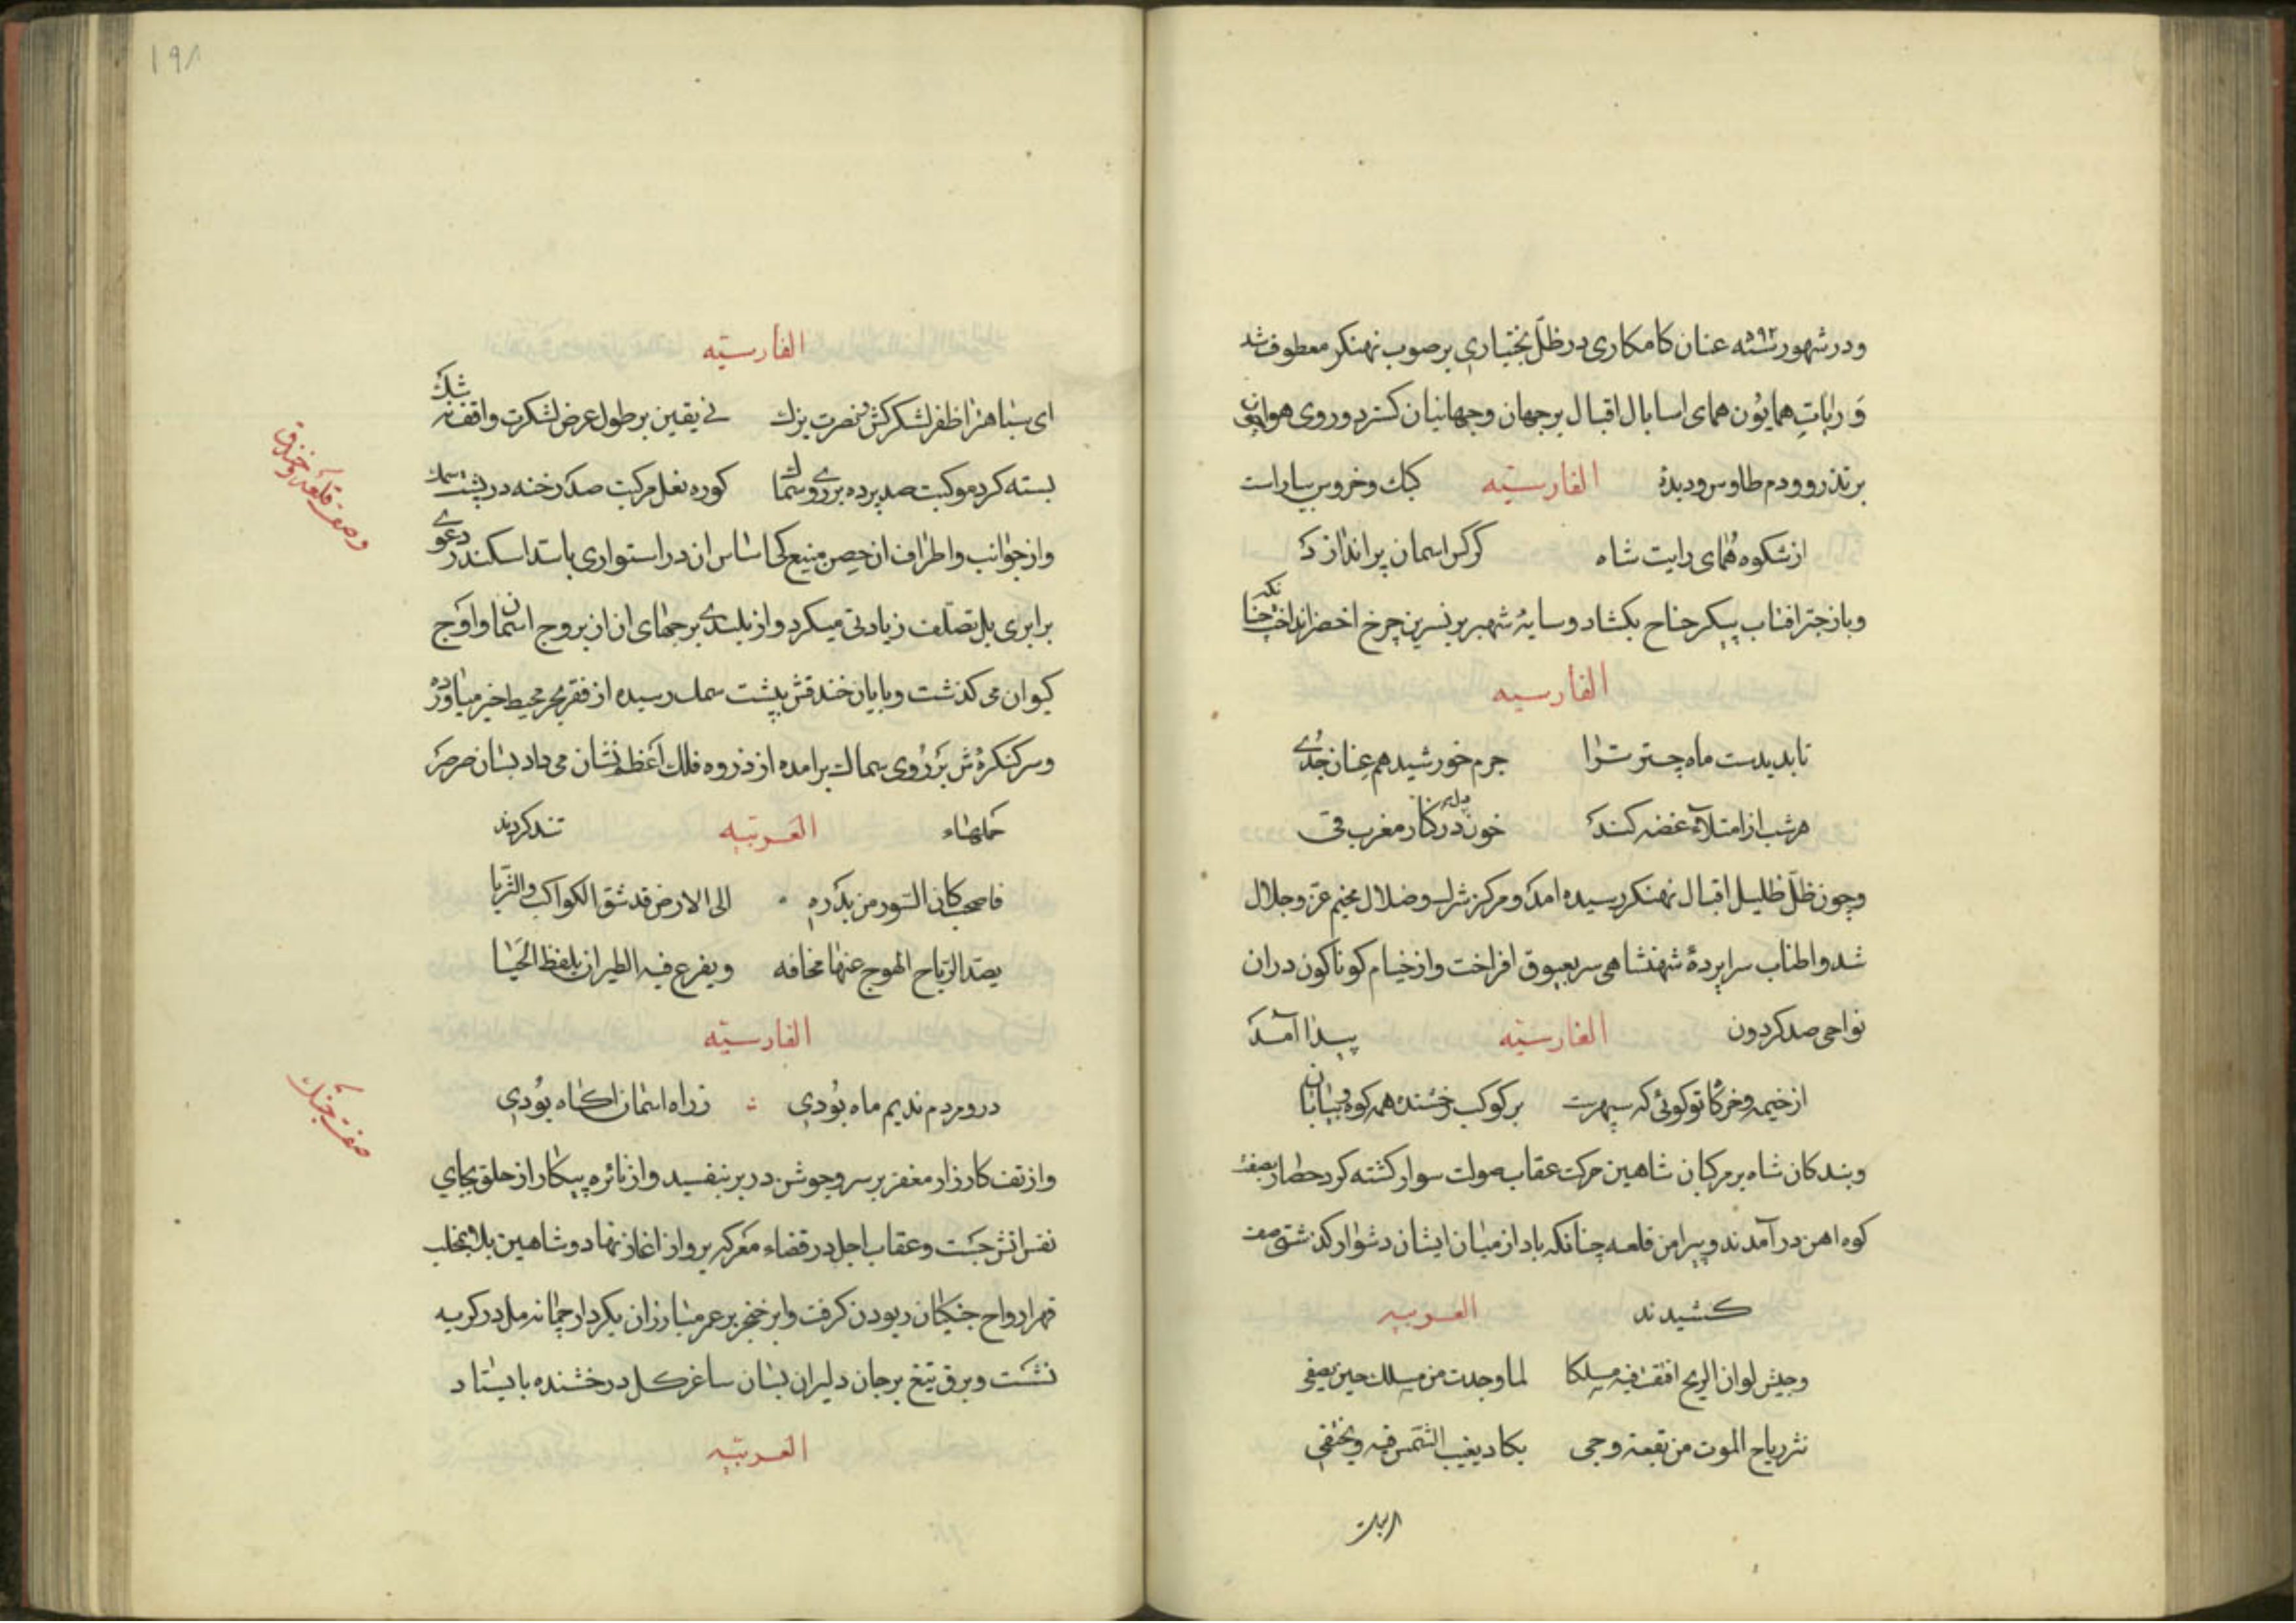 ودر شهور سنه ۵۹۲ عنان کامکاری در ظلّ بختیاری بر صوب نهنکر معطوف شد
وَ رایاتِ همایُون همای اسا بال اقبال بر جهان و جهانیان کسترد و روی هوا چون
بر تذرو و دم طاوس و دیدۀ الفارسیّه کبک و خروس بیاراست
از شکوه هُمای رایت شاه کرکس اسمان پر اندازدَ
و باز چتر افتاب پیکر جناح بکشاد و سایۀ شهپر بر نسرین چرخ اخضر انداخت چنانکه
الفارسیه
تا بدیدست ماه چتر تُرا جرم خورشید هم عِنان جُدَی
هر شب از امتلآء غصّه کندَ خون دل در کنار مغرب قی
و چون ظلّ ظلیل اقبال نهنکر رسیده امدَ و مرکز شرک و ضلال مخیم عزّ و جلال
شد و اطناب سراپردۀ شهنشاهی سر بعیوق افراخت و از خیام کوناکون دران
نواحی صد کردون الفارسیّه پیدا آمدَ
از خیمه و خرکا تو کوئی که سپهرست بر کوکب رخشنده همه کوه و بیابان
و بندکان شاه بر مرکبان شاهین حرکت عقاب صولت سوار کشته کرد حصار بصفت
کوه اهن درآمدند و پیرامن قلعه چنانکه باد از میان ایشان دشوار کذشتی صف
کشیدند العربیه
وجیش لو ان الریح افقت فیه مسلکا لما وجدت من مسلک حین یصفی
نثر ریاح الموت من نقعه وجی یکاد یغیب الشّمس فیه ویختفی
الفارسیّه
ای سپاهت را ظفر لشکر کش و نصرت یزک نی یقین بر طول عرض لشکرت واقف نه شک
بسته کرد موکبت صد پرده بر روی سماک کوره نعل مرکبت صد رخنه در پشت سمک
واز جوانب و اطراف ان حصن منیع که اساس ان در استواری با سد اسکندر دعوی
برابری بل تصلّف زیادتی میکرد و از بلندی برجهای ان از بروج اسمان و اَوج
کیوان می کذشت و پایان خندقش بپشت سمک رسیده از قعر بحر محیط خبر میآورد
و سر کنکرهٔ ش بَر رُوی سماک برامده از ذروه فلک اعظم نشان می داد بسان صرصر
حملهاء العَربیّه تند کردند
فاصحب کان السّور من بَدره الی الارض قد شق الکواکب والثریا
یصدّ الرّیاح الهوج عنها مخافه ویفرع فیه الطیر ان یلفظ الحَیا
الفارسیّه
در و مردم ندیم ماه بُودی ز راه اسمان اکاه بُودی
واز تف کارزار مغفر بر سر و جوشن در بر بتفسید و از نائره پیکار از حلق بجای
نفس اتش جَست و عقاب اجل در فضاء مَعرکه پرواز اغاز نهاد و شاهین بلا بمخلب
قهر ارواح جنکیان ربودن کرفت و ابر خنجر بر عمر مبارزان بکردار چمانه مل در کریه
نشَت و برق تیغ بر جان دلیران بسان ساغر کل درخشنده بایستاد
العَربیّه
وصف قلعه و خندق
صفت جنک
۱۹۸